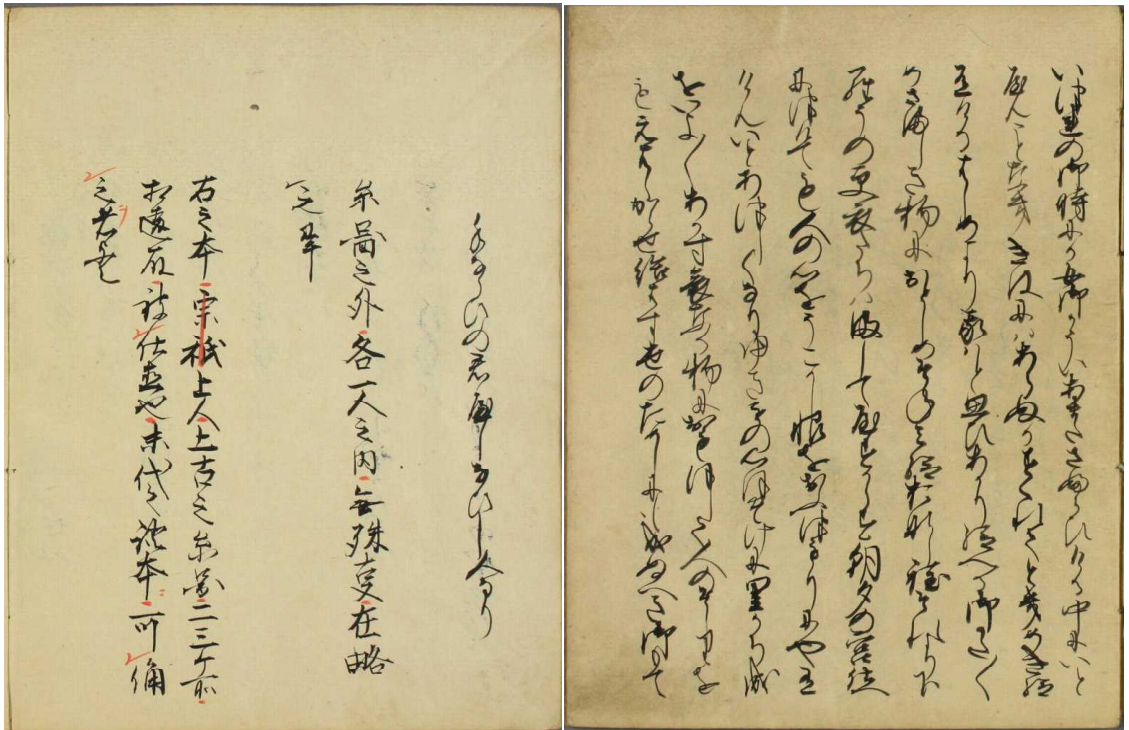 いつれの御時にか女御かういあまたさふらひける中にいと
やんことなききはにはあらぬかすくれてときめき給
有けりはしめより我はと思ひあかり給へる御かた〱
めさましき物におとしめそねみ給おなし程それより下
らうの更衣たちはましてやすからす朝夕の宮仕
につけても人の心をうこかし恨をおふつもりにや有
けんいとあつしくなりゆき物心ほそけに里かち成
をいよ〱あかす哀なる物におもほして人のそしりを
もえはゝからせ給はす世のためしにも成ぬへき御もて
手ならひの君 ひし人なり
系図之外各一人之内無殊変在略
之畢
右之本宗祇上人上古之系図二三ケ所
相違有被仕直也末代証本可備
之者也